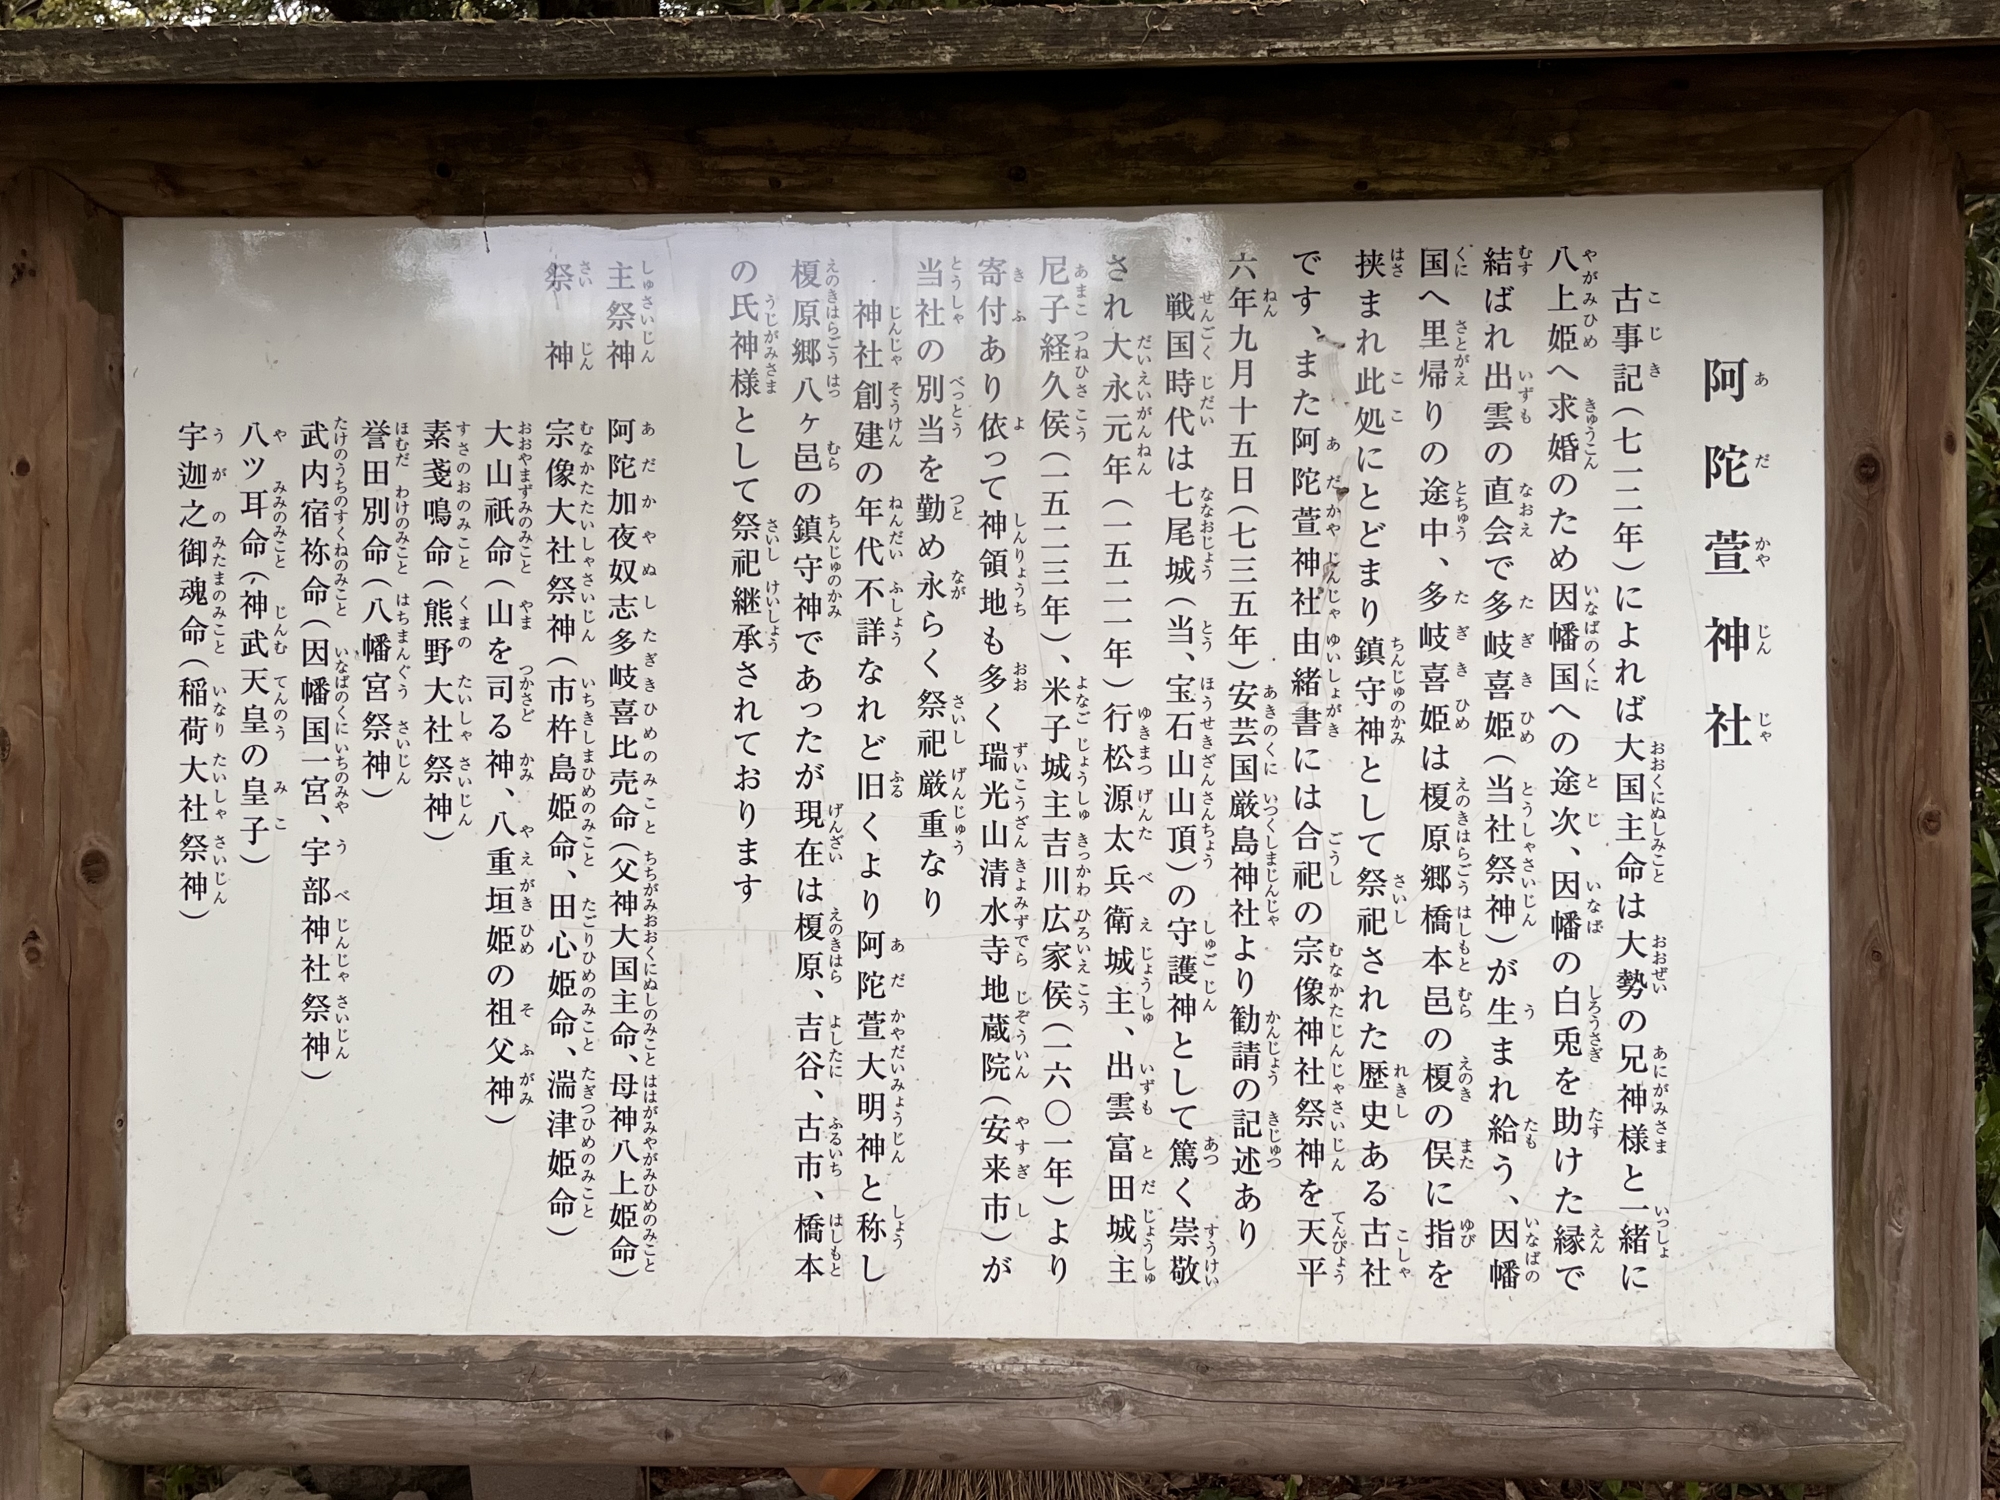 阿陀萱神社
古事記(七一二年)によれば大国主命は大勢の兄神様と一緒に
八上姫へ求婚のため因幡国への途次、因幡の白兎を助けた縁で
結ばれ出雲の直会で多岐喜姫(当社祭神)が生まれ給う、因幡
国へ里帰りの途中、多岐喜姫は榎原郷橋本邑の榎の俣に指を
挟まれ此処にとどまり鎮守神として祭祀された歴史ある古社
です、また阿陀萱神社由緒書には合祀の宗像神社祭神を天平
六年九月十五日(七三五年)安芸国厳島神社より勧請の記述あり
戦国時代は七尾城(当、宝石山山頂)の守護神として篤く崇敬
され大永元年(一五二一年)行松源太兵衛城主、出雲富田城主
尼子経久侯(一五二三年)、米子城主吉川広家侯(一六〇一年)より
寄付あり依って神領地も多く瑞光山清水寺地蔵院(安来市)が
当社の別当を勤め永らく祭祀厳重なり
神社創建の年代不詳なれど旧くより阿陀萱大明神と称し
榎原郷八ヶ邑の鎮守神であったが現在は榎原、吉谷、古市、橋本
の氏神様として祭祀継承されております
主祭神 阿陀加夜奴志多岐喜比売命(父神大国主命、母神八上姫命)
祭神 宗像大社祭神(市杵島姫命、田心姫命、湍津姫命)
大山祇命(山を司る神、八重垣姫の祖父神)
素戔鳴命(熊野大社祭神)
誉田別命(八幡宮祭神)
武内宿祢命(因幡国一宮、宇部神社祭神)
八ツ耳命(神武天皇の皇子)
宇迦之御魂命(稲荷大社祭神)